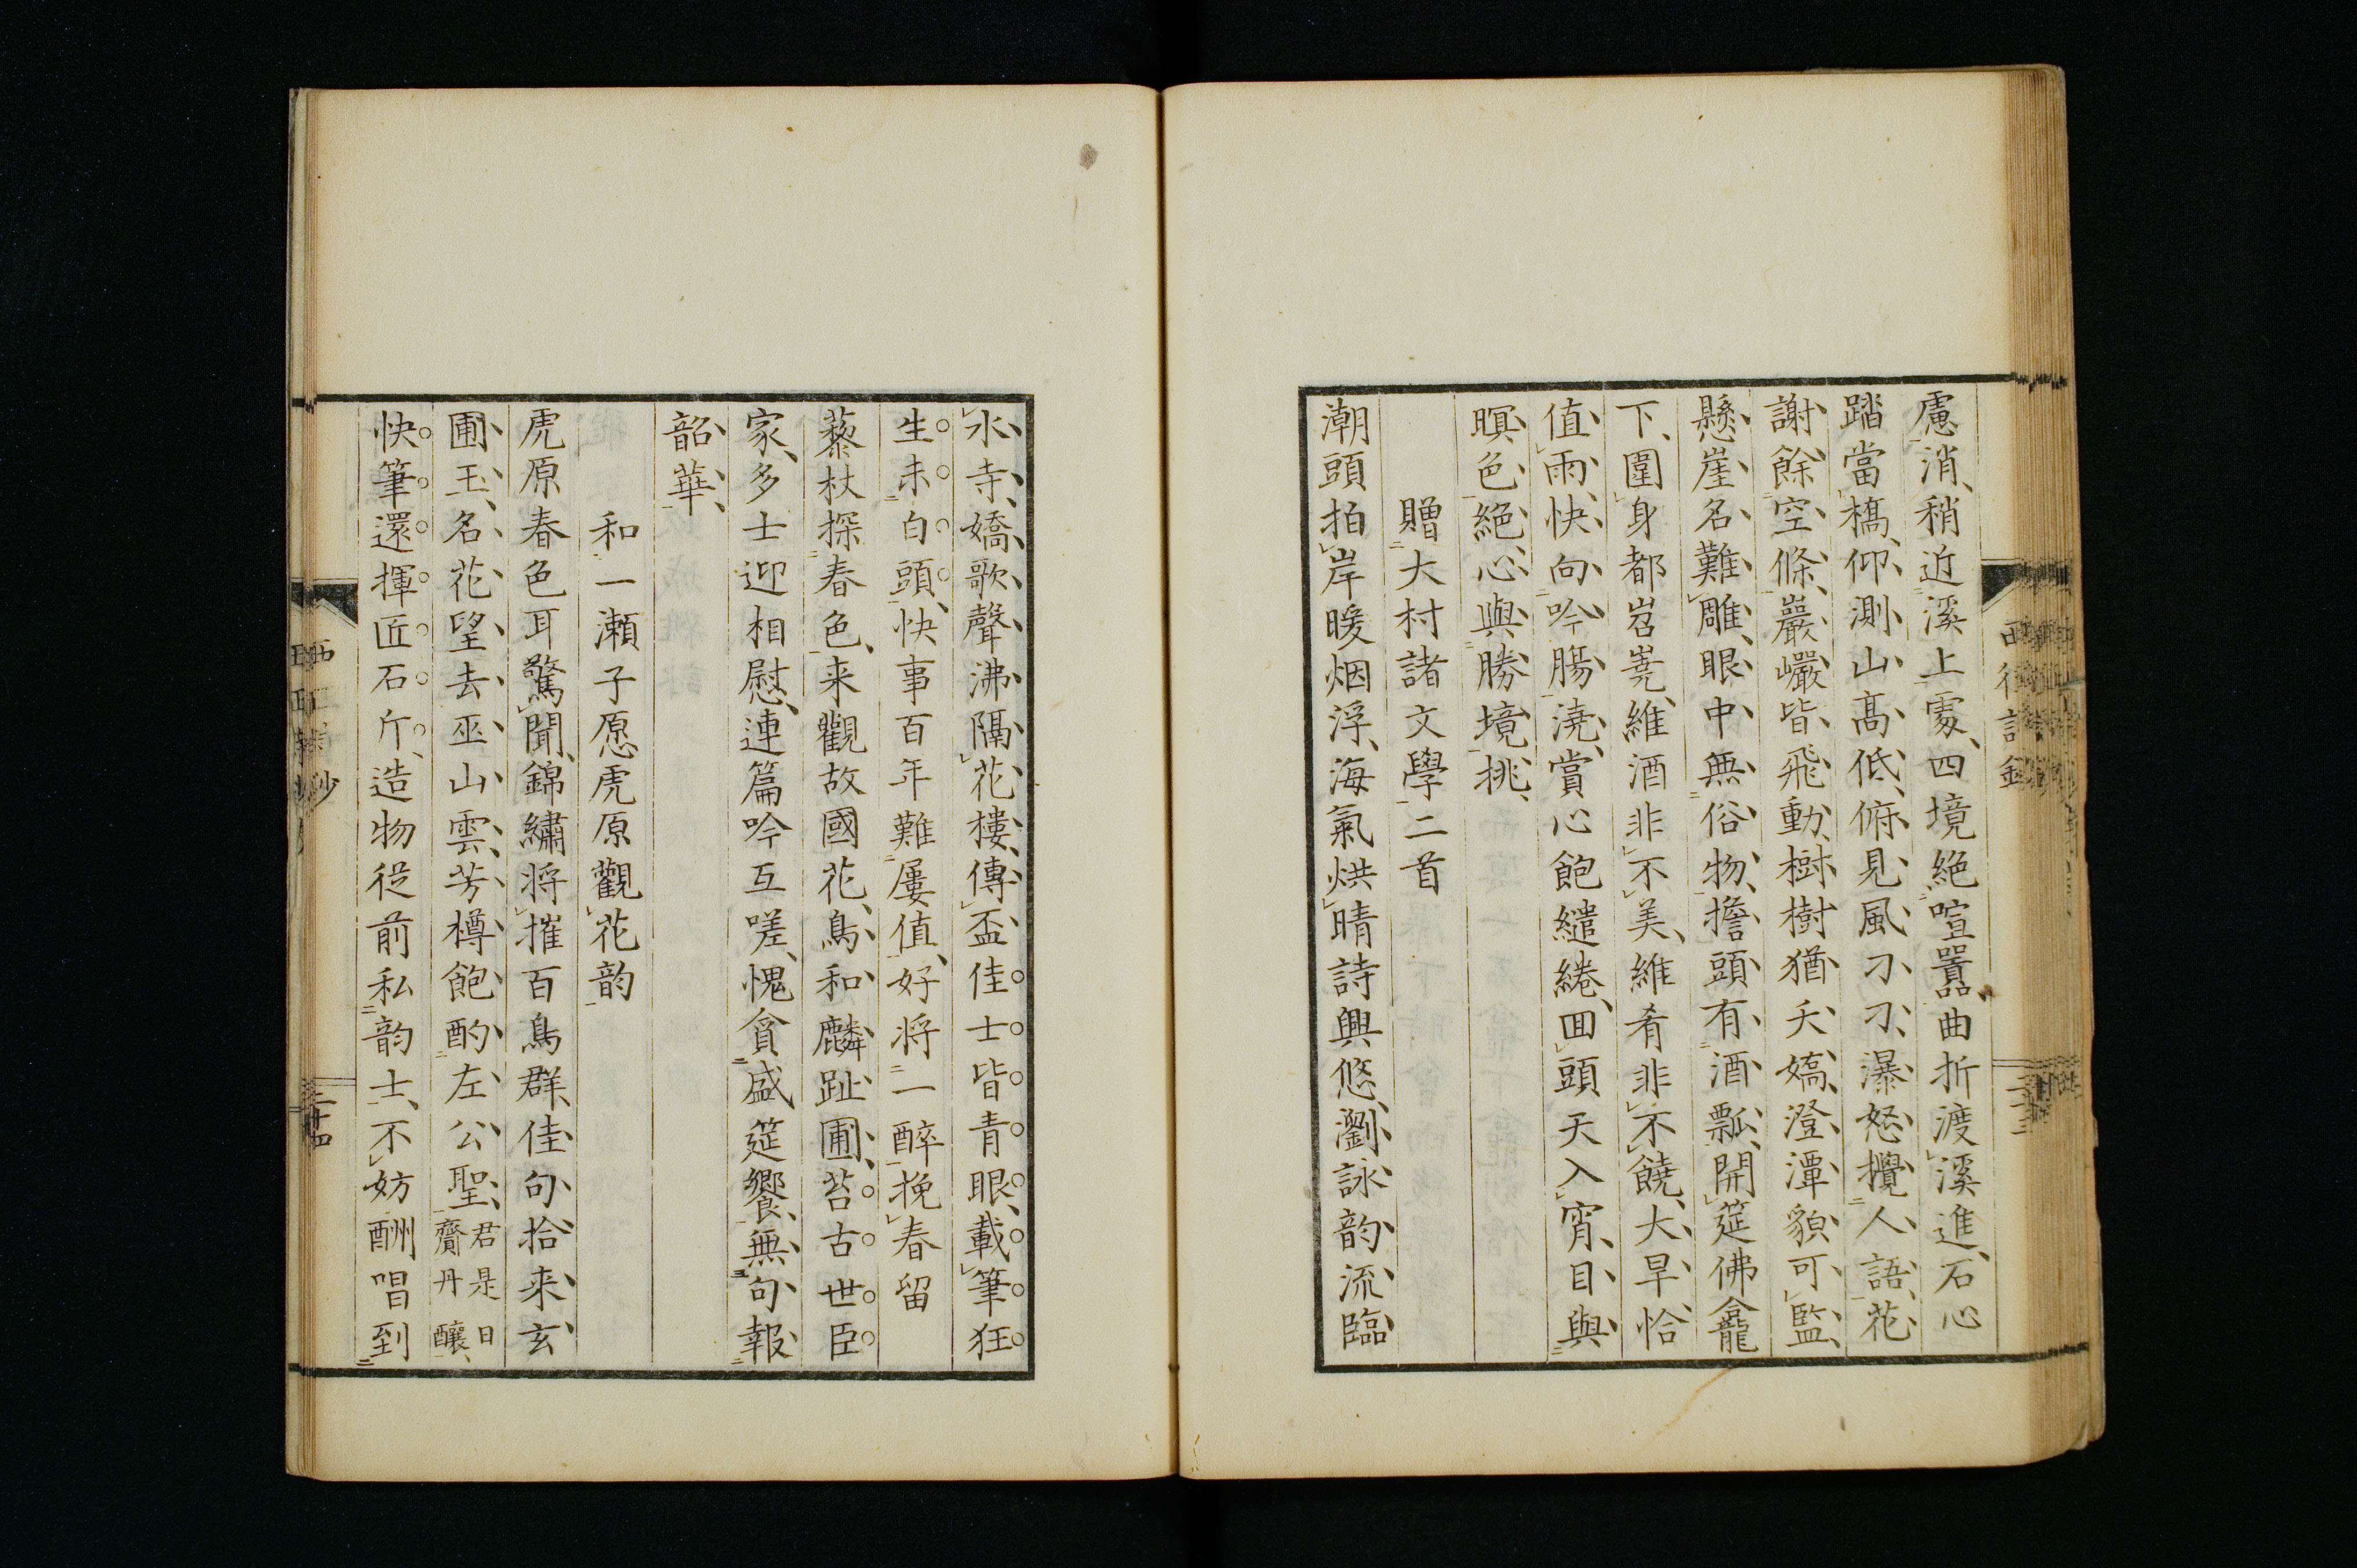 慮消稍近溪上處四境絕喧囂曲折渡溪進石心
踏當橋仰測山高低俯見風刁刁瀑怒攪人語花
謝餘空條巖巘皆飛動樹樹猶夭嬌澄潭貌可監
懸崖名難雕眼中無俗物擔頭有酒瓢開筵佛龕
下圍身都岧嶤維酒非不美維肴非不饒大旱恰
值雨快向吟腸澆賞心飽繾綣囬頭天入宵目與
暝色絕心與勝境挑
贈大村諸文學二首
潮頭拍岸暖烟浮海氣烘晴詩興悠瀏詠韵流臨
水寺嬌歌聲沸隔花樓傳盃佳士皆青眼載筆狂
生未白頭快事百年難屢值好将一醉挽春留
藜杖探春色来觀故國花鳥和麟趾圃苔古世臣
家多士迎相慰連篇吟互嗟愧貪盛筵饗無句報
韶華
和一瀬子愿虎原觀花韵
虎原春色耳驚聞錦繡将摧百鳥群佳句拾来玄
圃玉名花望去巫山雲芳樽飽酌左公聖君是日
齎丹醸
快筆還揮匠石斤造物従前私韵士不妨酬唱到
二十四